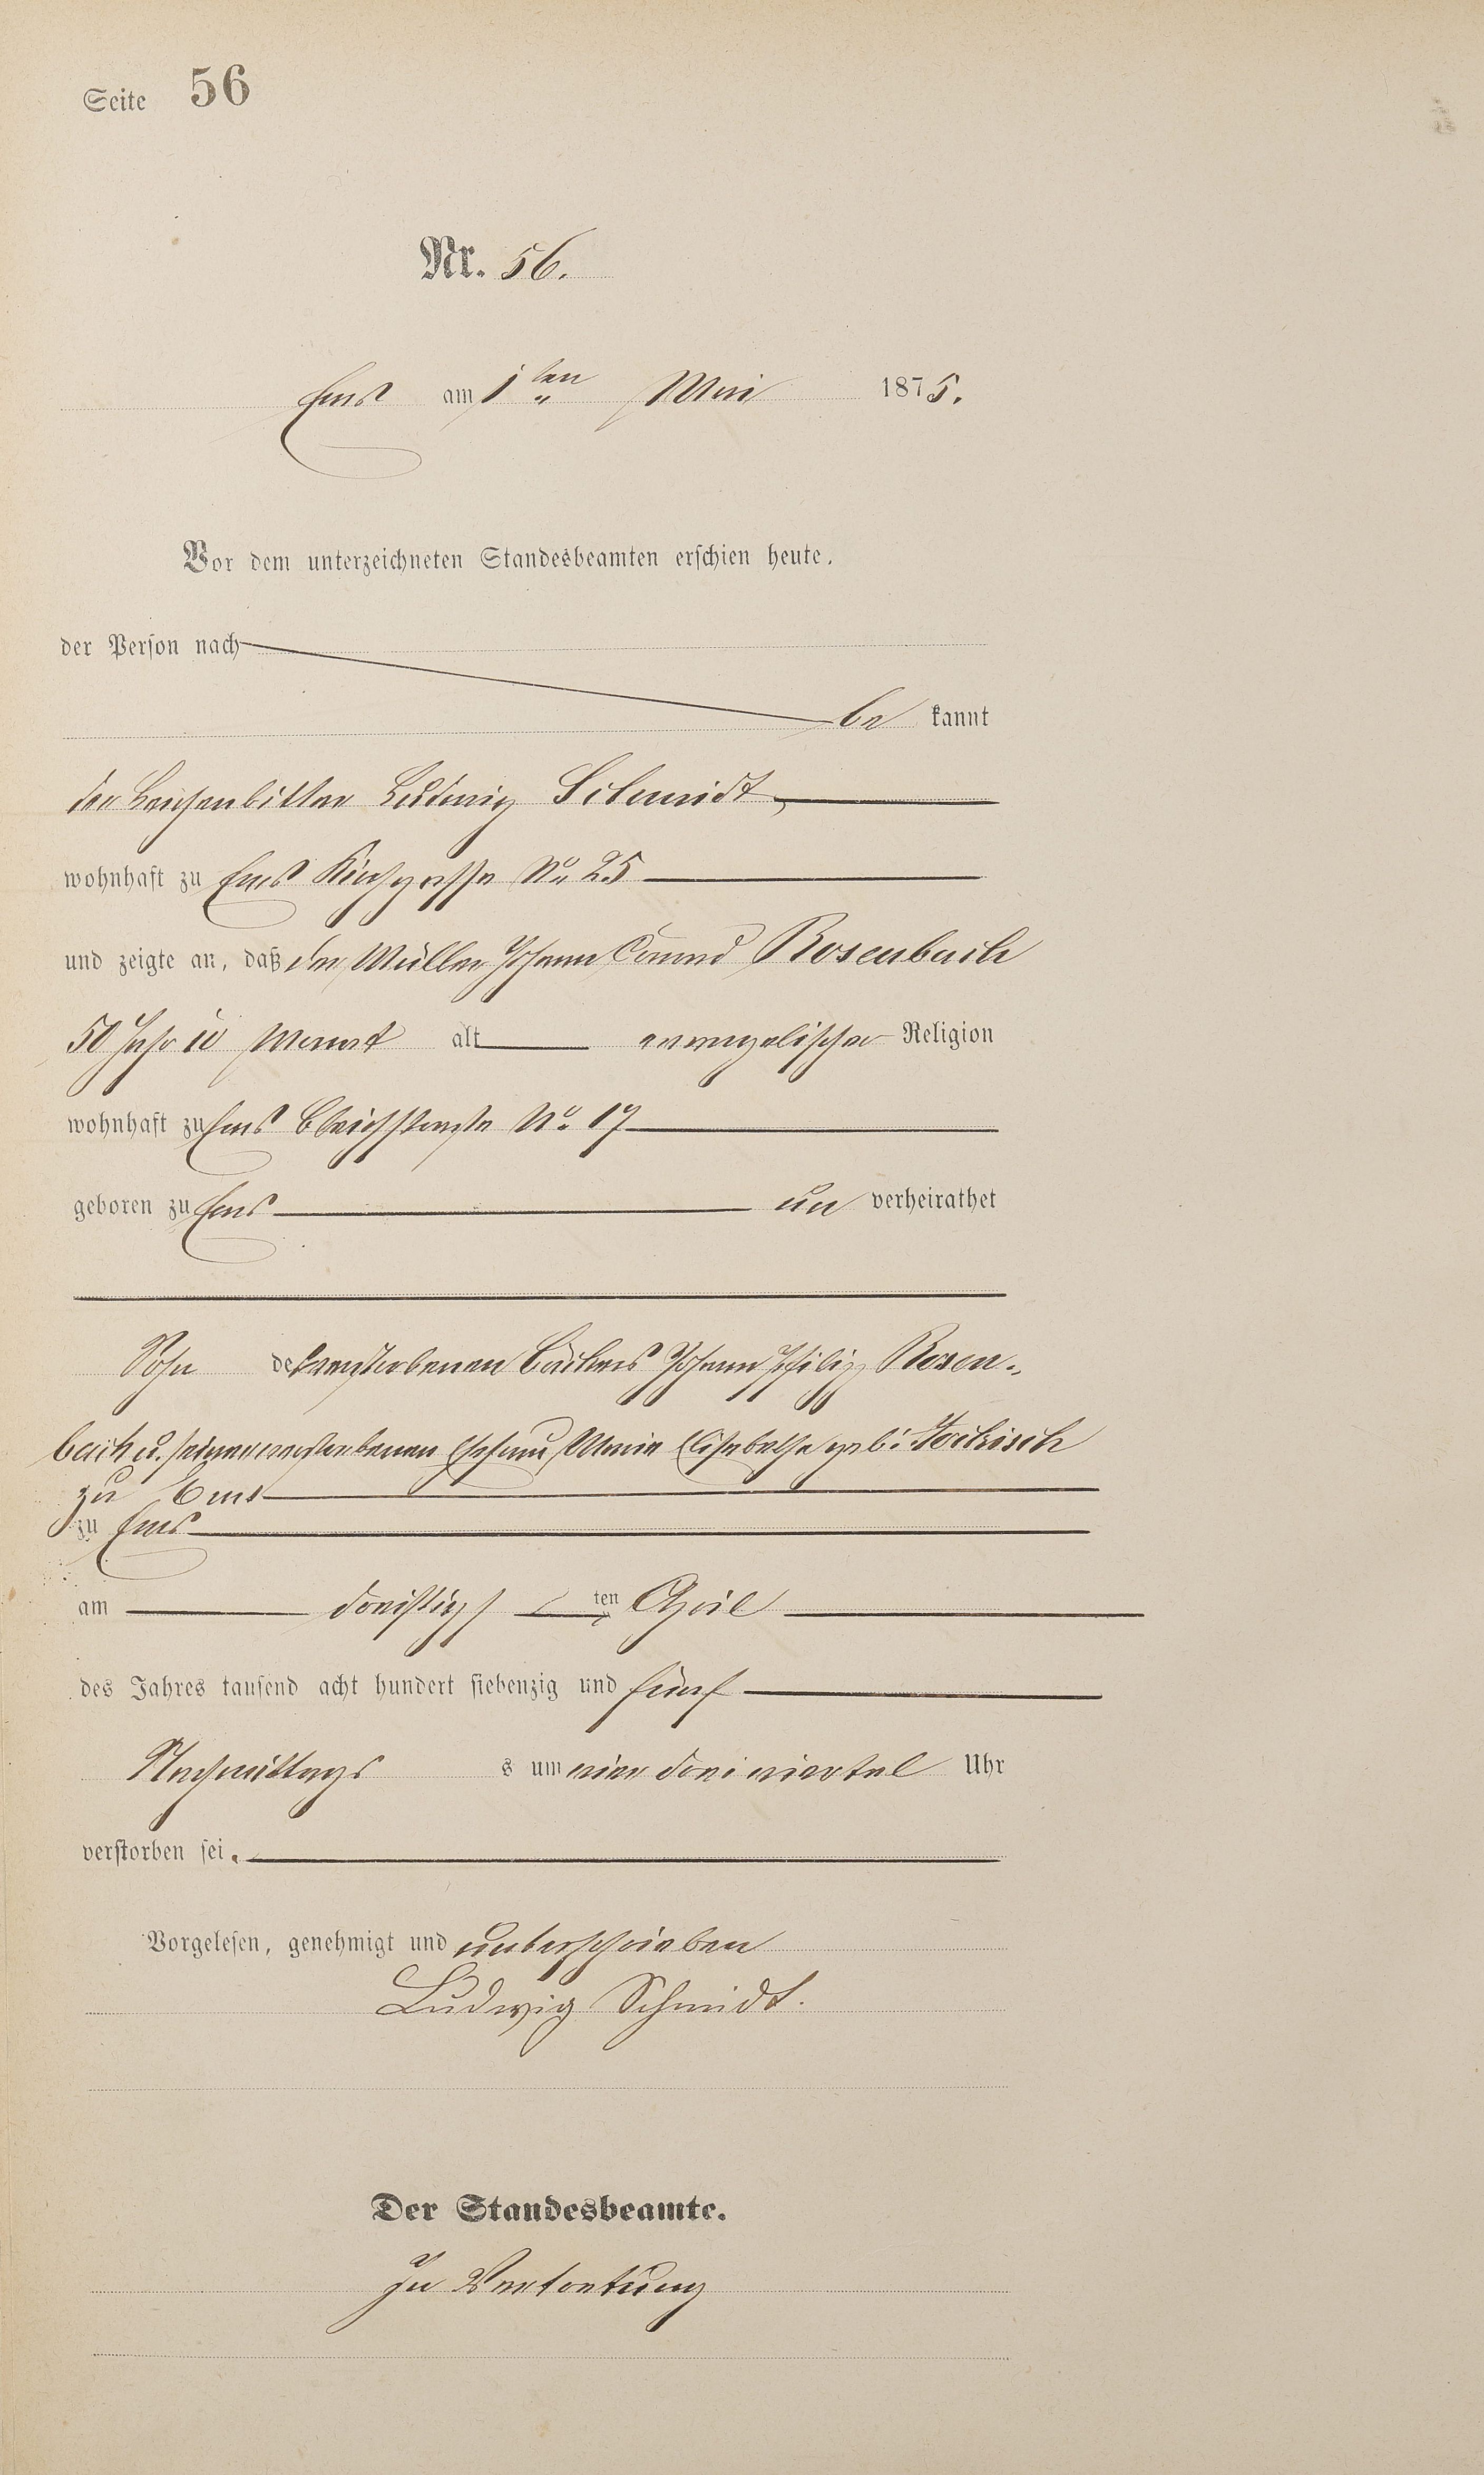 Seite 56
Nr. 56.
Ems am 1ten Mai 1875.
Vor dem unterzeichneten Standesbeamten erschien heute,
der Person nach
be kannt
der Leichenbitter Ludwig Schmidt,
wohnhaft zu Ems Kirchgasse No 25
und zeigte an, daß der Müller Johann Conrad Rosenbach
50 Jahr 10 Monat alt evangelischer Religion
wohnhaft zu Ems Bleichstraße No. 17
geboren zu Ems un verheirathet
Sohn des verstorbenen Bäckers Johann Philip Rosen-
bach u. seiner verstorbenen Ehefrau Maria Elisabetha geb:
zu Ems
zu Ems
am dreißigs ten April
des Jahres tausend acht hundert siebenzig und fünf
Nachmittags s um vier dreiviertel Uhr
verstorben sei.
Vorgelesen, genehmigt und unterschrieben
Ludwig Schmidt.
Der Standesbeamte.
In Vertretung